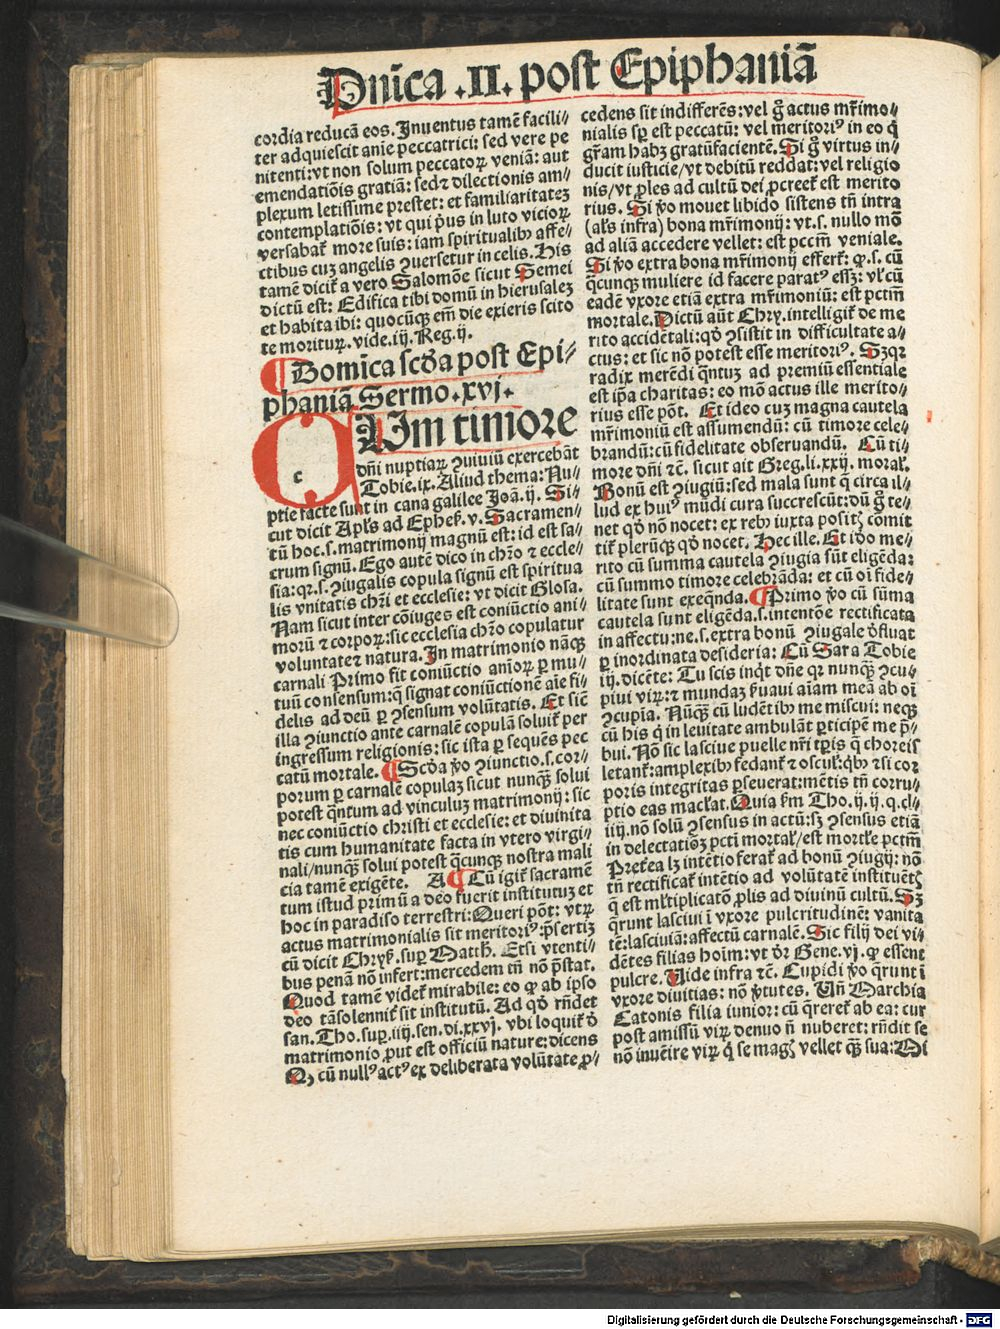 Dnīca .II. post Epiphaniā
cordia reducā eos. Inuentus tamē facili⸗
ter adquiescit anie peccatrici: sed vere pe
nitenti: vt non solum peccatoꝝ veniā: aut
emendatiōis gratiā: sedꝫ dilectionis am⸗
plexum letissime prestet: et familiaritatez
contemplatiōis: vt qui pͥus in luto vicioꝝ
versabat᷑ more suis: iam spiritualibꝫ affe⸗
ctibus cuz angelis ꝯuersetur in celis. His
tamē dicit᷑ a vero Salomōe sicut Semei
dictū est: Edifica tibi domū in hierusalez
et habita ibi: quocūqꝫ em̄ die exieris scito
te morituꝝ. vide .iij. Reg. ij.
¶ Domīca scd̄a post Epi⸗
phaniā Sermo .xvj.
CUm timore
c
dn̄i nuptiaꝝ ꝯuiuiū exercebāt
Tobie .ix. Aliud thema: Nu⸗
ptie facte sunt in cana galilee Joā. ij. Si⸗
cut dicit Apl̄s ad Ephes̄. v. Sacramen⸗
tū hoc .s. matrimonij magnū est: id est sa⸗
crum signū. Ego autē dico in chr̄o ⁊ eccle⸗
sia: qꝛ .s. ꝯiugalis copula signū est spiritua
lis vnitatis chr̄i et ecclesie: vt dicit Glosa.
Nam sicut inter cōiuges est coniūctio ani⸗
morū ⁊ corpoꝝ: sic ecclesia chr̄o copulatur
voluntate ⁊ natura. In matrimonio nāqꝫ
carnali Primo fit coniūctio anīoꝝ ꝑ mu⸗
tuū consensum: q̄ signat coniūctionē aīe fi⸗
delis ad deū ꝑ ꝯsensum volūtatis. Et siē
illa ꝯiunctio ante carnalē copulā soluit᷑ per
ingressum religionis: sic ista ꝑ sequēs pec
catū mortale. ¶ Scd̄a v̊o ꝯiunctio .s. cor⸗
porum ꝑ carnalē copulaz sicut nunqꝫ solui
potest qͣntum ad vinculuz matrimonij: sic
nec coniūctio christi et ecclesie: et diuinita
tis cum humanitate facta in vtero virgi⸗
nali/nunqꝫ solui potest q̄cunqꝫ nostra mali
cia tamē exigēte. A ¶ Cū igit᷑ sacramē
tum istud primū a deo fuerit institutuz et
hoc in paradiso terrestri: Queri pōt: vtꝝ
actus matrimonialis sit meritoriꝰ: p̄sertiz
cū dicit Chryß. suꝑ Matth̄. Etsi vtenti⸗
bus penā nō infert: mercedem tn̄ nō p̄stat.
Quod tamē videt᷑ mirabile: eo ꝙ ab ipso
deo tāsolennit᷑ sit institutū. Ad qd̊ rn̄det
san. Tho. suꝑ .iiij. sen. di. xxvj. vbi loquit᷑ d̊
matrimonio ꝓut est officiū nature: dicens
Qꝫ cū nullꝰ actꝰ ex deliberata volūtate ꝓ⸗
cedens sit indifferēs: vel gͦ actus mr̄imo⸗
nialis sꝑ est peccatū: vel meritoriꝰ in eo qͥ
gr̄am habꝫ gratūfacientē. Si gͦ virtus in⸗
ducit iusticie/vt debitū reddat: vel religio
nis/vt ꝓles ad cultū dei ꝓcreet᷑ est merito
rius. Si v̊o mouet libido sistens tn̄ intra
(al̄s infra) bona mr̄imonij: vt .s. nullo mō
ad aliā accedere vellet: est pccm̄ veniale.
Si v̊o extra bona mr̄imonij effert᷑: ꝙ .s. cū
q̄cunqꝫ muliere id facere paratꝰ essꝫ: vl̓ cū
eadē vxore etiā extra mr̄imoniū: est pctm̄
mortale. Dictū aūt Chry. intelligit᷑ de me
rito accidētali: qd̊ ꝯsistit in difficultate a⸗
ctus: et sic nō potest esse meritoriꝰ. Sꝫ qꝛ
radix merēdi qͣntuz ad premiū essentiale
est ip̄a charitas: eo mō actus ille merito⸗
rius esse pōt. Et ideo cuz magna cautela
mr̄imoniū est assumendū: cū timore cele⸗
brandū: cū fidelitate obseruandū. Cū ti⸗
more dn̄i ⁊c̄. sicut ait Greg. li. xxij. moral̓.
Bonū est ꝯiugiū: sed mala sunt q̄ circa il⸗
lud ex huiꝰ mūdi cura succrescūt: dū gͦ te⸗
net qd̊ nō nocet: ex rebꝫ iuxta positꝭ cōmit
tit᷑ plerūqꝫ qd̊ nocet. Hec ille. Et idō me⸗
rito cū summa cautela ꝯiugia sūt eligēda:
cū summo timore celebrāda: et cū oī fide⸗
litate sunt exeqn̄da. ¶ Primo v̊o cū sūma
cautela sunt eligēda .s. intentōe rectificata
in affectu: ne .s. extra bonū ꝯiugale d̊fluat
ꝑ inordinata desideria: Cū Sara Tobie
iij. dicēte: Tu scis inqͥt dn̄e qꝛ nunqꝫ ꝯcu⸗
piui viꝝ: ⁊ mundaz ẜuaui aīam meā ab oī
ꝯcupīa. Nūqꝫ cū ludētibꝫ me miscui: neqꝫ
cū his qͥ in leuitate ambulāt ꝑticipē me p̄⸗
bui. Nō sic lasciue puelle nr̄i tꝑis q̄ choreis
letant᷑: amplexibꝫ fedant᷑ ⁊ oscul̓: qͥbꝫ ⁊ si cor
poris integritas ꝑseuerat: mētis tn̄ corru⸗
ptio eas macl̓at. Quia ẜm Tho. ij. ij. q. cl⸗
iiij. nō solū ꝯsensus in actū: sꝫ ꝯsensus etiā
in delectatiōꝫ pcti mortal̓/est mortl̓e pctm̄
Preterea lꝫ intētio ferat᷑ ad bonū ꝯiugij: nō
tn̄ rectificat᷑ intētio ad volūtatē instituētꝭ
q̄ est ml̓tiplicatō ꝓlis ad diuinū cultū. Sꝫ
q̄runt lasciui ī vxore pulcritudinē: vanita
tē: lasciuiā: affectū carnalē. Sic filij dei vi⸗
dētes filias hoīm: vt dr̄ Gene. vj. ꝙ essent
pulcre. Vide infra ⁊c̄. Cupidi v̊o q̄runt ī
vxore diuitias: nō v̓tutes. Vn̄ Marchia
Catonis filia iunior: cū q̄reret᷑ ab ea: cur
post amissū viꝝ denuo n̄ nuberet: rn̄dit se
nō inuēire viꝝ qͥ se magꝭ vellet qꝫ sua: Di
Digitalisierung gefördert durch die Deutsche Forschungsgemeinschaft - DFG